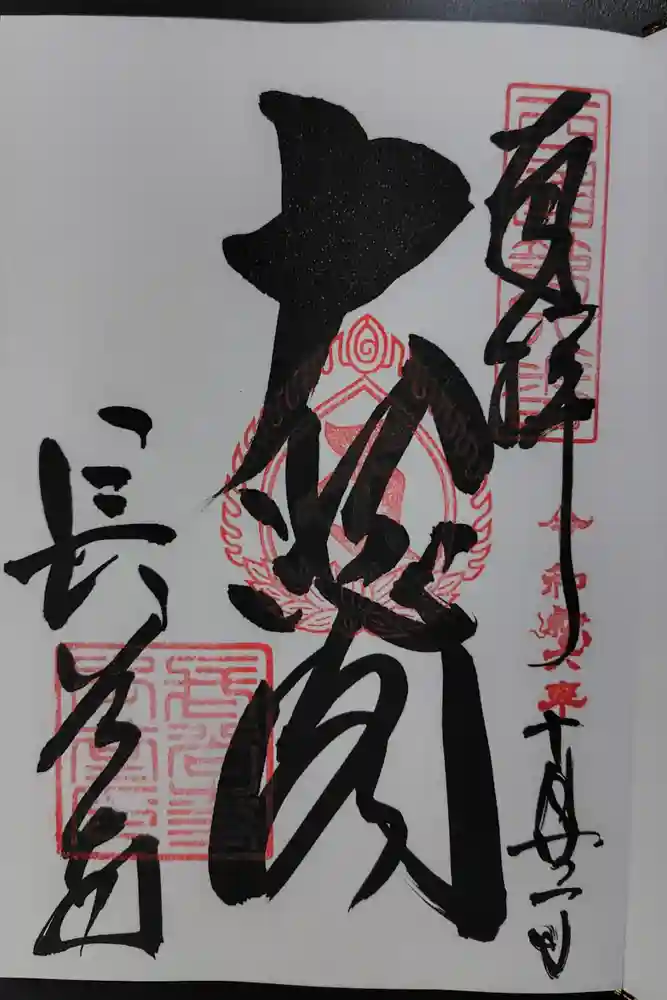 奉拝
令和六年
十月廿一日
大悲閣
長谷寺